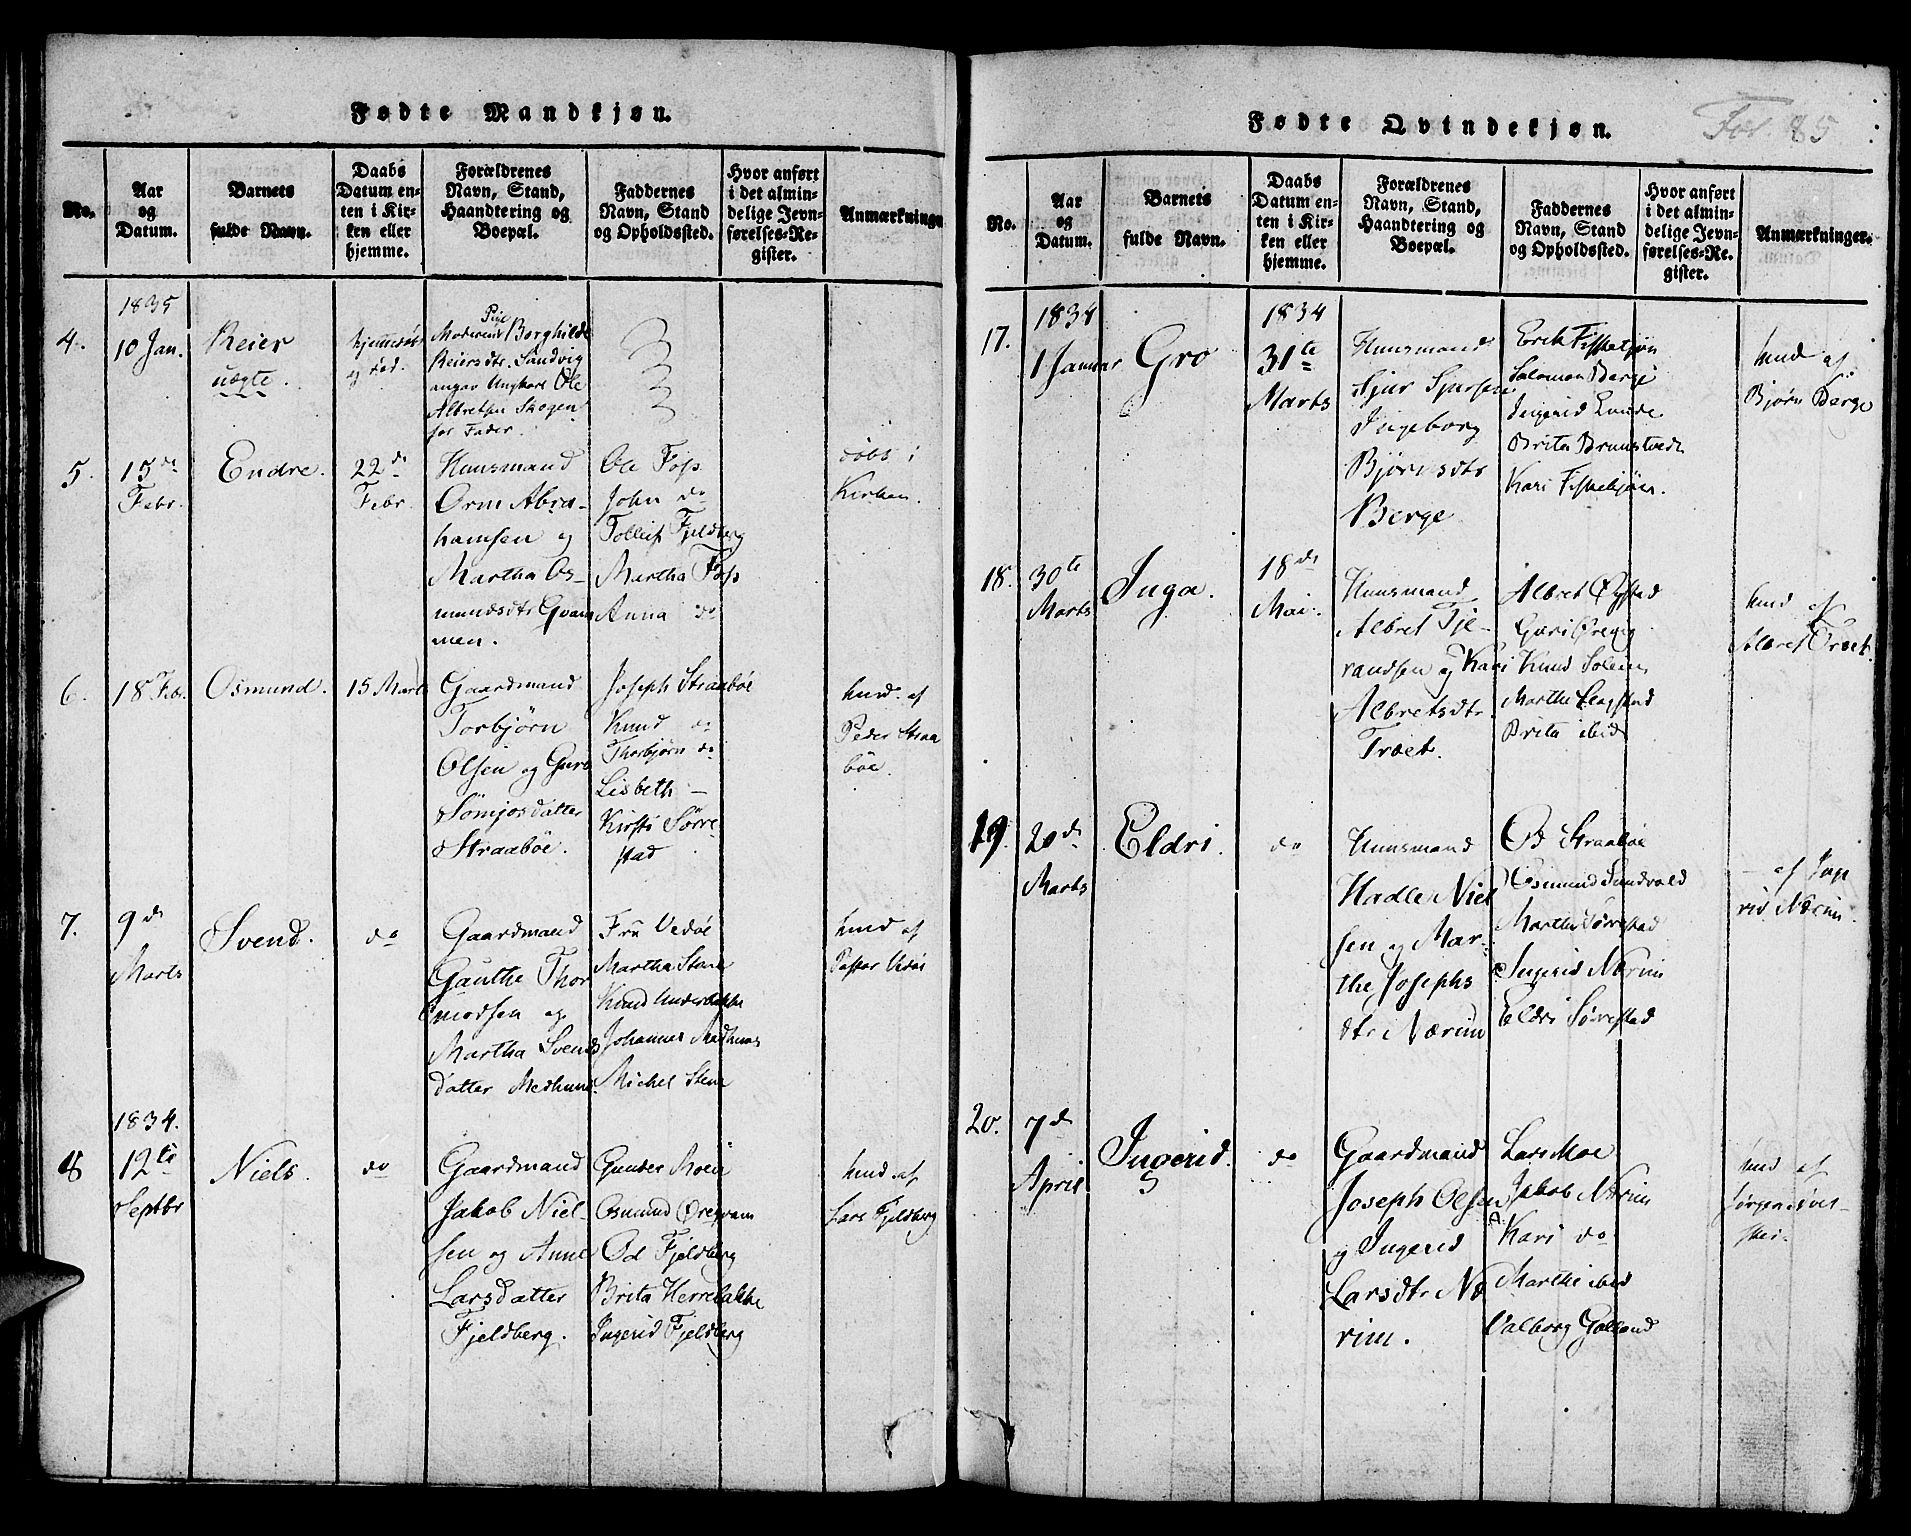 Fødte Mandkjøn.
No.
Aar
og
Datum.
Barnets
fulde Navn.
Daabs
Datum en-
ten i Kir-
ken eller
hjemme.
Forældrenes
Navn, Stand,
Haandtering og
Boepæl.
Faddernes
Navn, Stand
og Opholdssted.
Hvor anført
i det almin-
delige Jevn-
førelses-Re-
gister.
Anmærkninger
1835
4.
10 Jan.
Reier
uægte.
Pige
Borghilde
Reiersdtr. Sandvig
angav Ungkarl Ole
Albretsen Skogen
for Fader.
5.
15de
Febr.
Endre.
22de
Febr.
Huusmand
Orm Abra-
hamsen og
Martha Os-
mundsdtr Qvam
men.
Ole Foss
John do
Tolleif Fjeldberg
Martha Foss
Anna do
døbt i
Kirken.
6.
18 Feb.
Osmund.
15 Marts
Gaardmand
Torbjørn
Olsen og Guro
Sømjosdatter
Straabøe.
Joseph Straabøe
Knud do
Thorbjørn do
Lisbeth -
Kirsti Sørre-
stad
hmd. af
Peder Straa
bøe.
7.
9de
Marts
Svend.
do
Gaardmand
Gauthe Thor
modsen og
Martha Svends
datter Medhuus
Fru Vedøe
Martha Stene
Knud Underbakke
Johannes Medhuus
Michel Stene
hmd af
Pastor Vedøe
1834.
8
12te
Septbr
Niels.
do
Gaardmand
Jakob Niel-
sen og Anne
Larsdatter
Fjeldberg.
Gunder
Osmund Øregvam
Od Fjeldberg
Brita Herrebakke
Ingerid Fjeldberg
hmd. af
Lars Fjeldberg
Fødte Qvindekjøn.
Fol. 85
No.
Aar
og
Datum.
Barnets
fulde Navn.
Daabs
Datum en-
ten i Kir-
ken eller
hjemme.
Forældrenes
Navn, Stand,
Haandtering og
Boepæl.
Faddernes
Navn, Stand
og Opholdssted.
Hvor anført
i det almin-
delige Jevn-
førelses-Re-
gister.
Anmærkninger.
17.
1834
1 Januar
Gro
1834
31te
Marts
Huusmand
Sjur Sjursen
Ingeborg
Bjørnsdtr
Berge
Erik Fiskekjøn
Salomon Berge
Ingerid Lunde
Brita Brunstvedt
Kari Fiskekjøn.
hmd af
Bjørn Berge
18.
30te
Marts
Inga.
18de
Mai.
Huusmand
Albret Tje-
randsen og Kari
Albretsdtr.
Træet.
Albret Øystad
Guri
Knud
Marthe
Brita ibid
hmd af
Albret Træet.
19.
20de
Marts
Eldri.
do
Huusmand
Hadle Niel
sen og Mar-
the Josephs
dtr Nærim
Od Straabøe
Osmund Sandvold
Marthe Sørrestad
Ingerid Nærim
Eldri Sørrestad
- af Inge
rid Nærim.
20.
7de
April
Ingerid.
do
Gaardmand
Joseph Olsen
og Ingerid
Larsdtr Næ
rim.
Lars Moe
Jakob Nærim
Kari do
Marthe ibid
Valborg Golland
hmd af